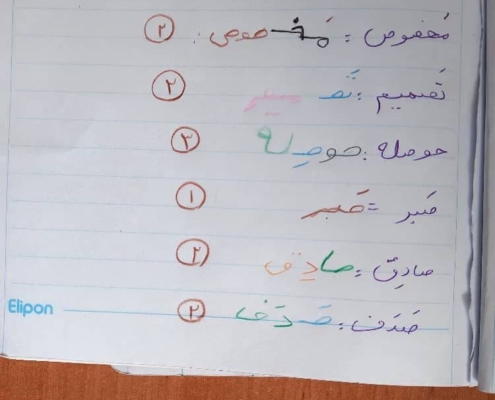 مَخصوص : مَخـ صوص : ۲
تَصمیم : تَصـ میم ۲
حوصله : حو صِـ له ۳
صَبر = صَبر ۱
صادِق : صا دِق ۲
صَدَف : صَـ دَف ۲
Elipon